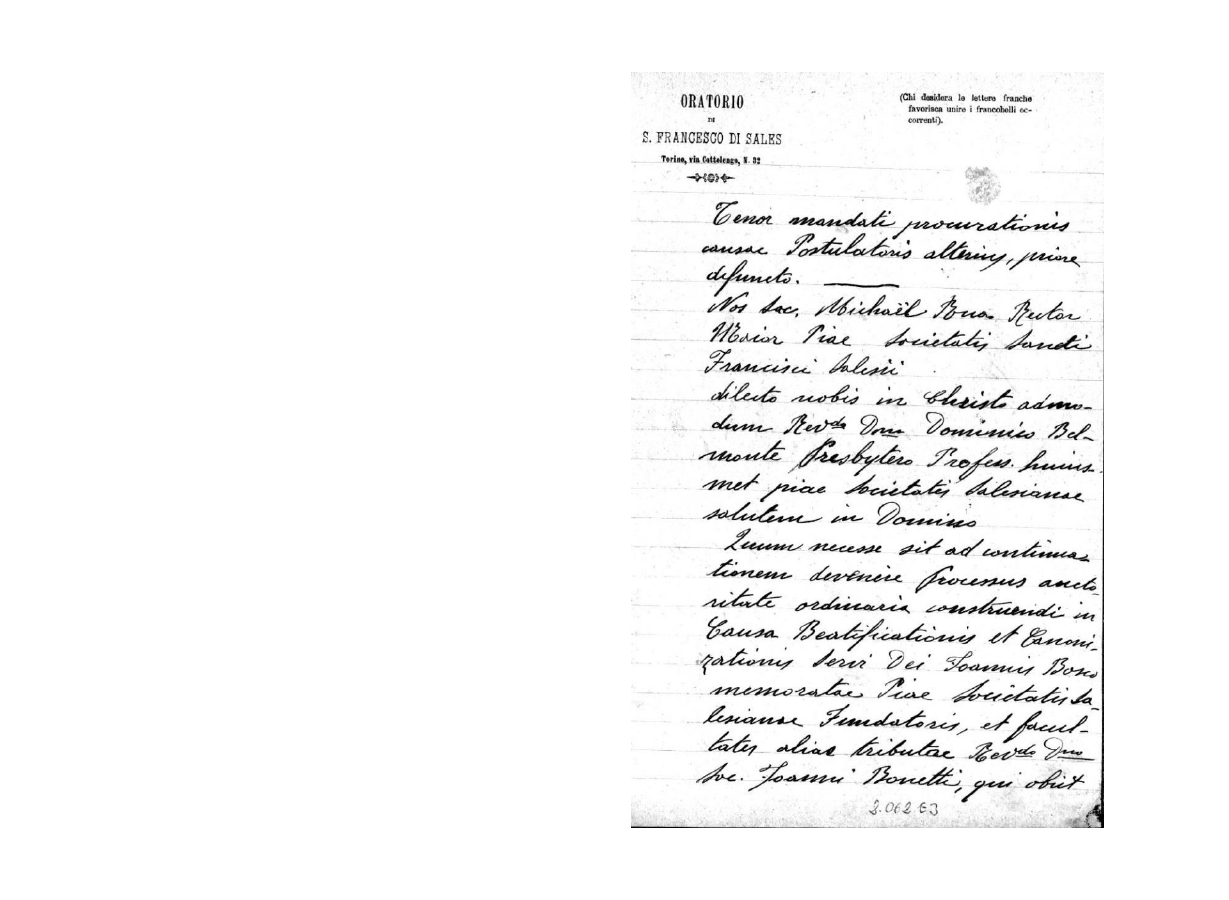 ORATORIO
DI
S. FRANCESCO DI SALES
Torino, via Cottolengo, N. 32
(Chi desidera le lettere franche
favorisca unire i francobolli oc-
correnti).
Tenor mandati procurationis
causae Postulatoris alterius, priore
defuncto.
Nos Sac. Michaël Rua Rector
Maior Piae Societatis Sancti
Francisci Salesii
dilecto nobis in Christo admo-
dum Revdo Dno Dominico Bel-
monte Presbytero Profess. huius-
met piae Societatis Salesianae
salutem in Domino
Quum necesse sit ad continua-
tionem devenire Processus aucto-
ritate ordinaria construendi in
Causa Beatificationis et Canoni-
zationis Servi Dei Joannis Bosco
memoratae Piae Societatis Sa-
lesianae Fundatoris, et facul-
tates alias tributae Revdo Dno
Sac. Joanni Bonetti, qui obiit
2.062 E3